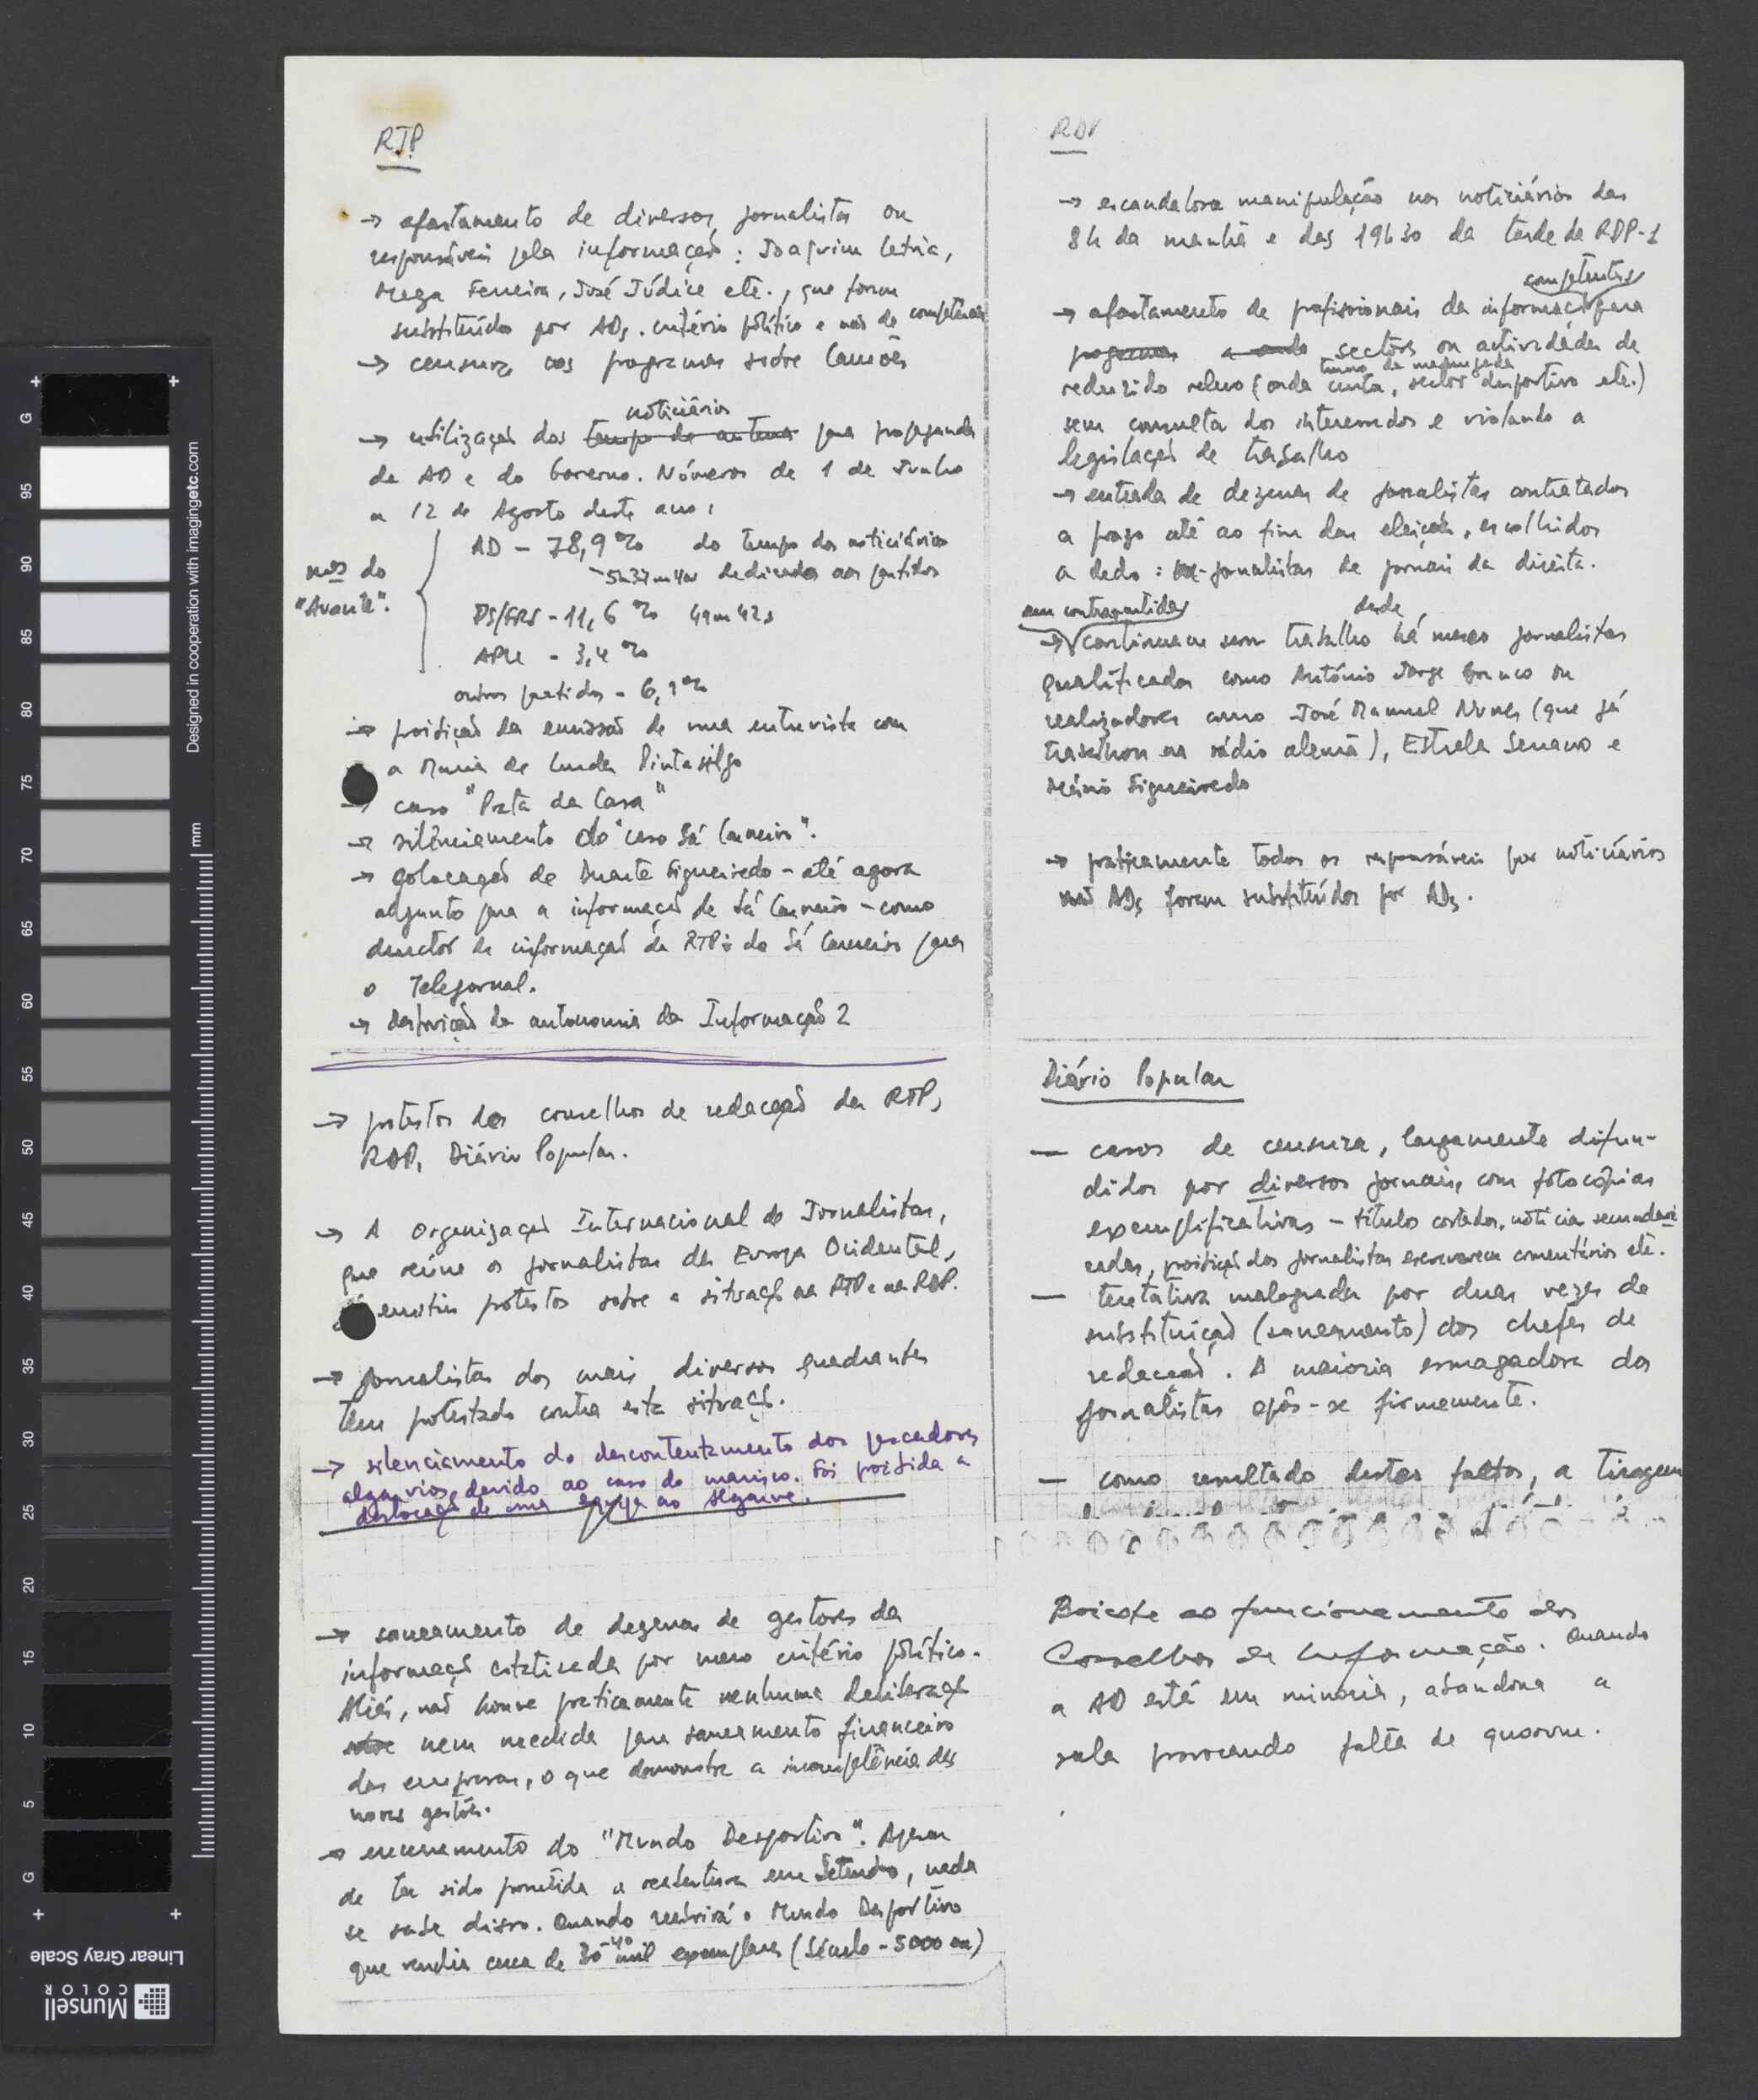 RTP
→ afastamento de diversos jornalistas ou
responsáveis pela informação: Joaquim Letria,
Mega Ferreira, José Júdice etc., que foram
substituídos por ADs. critério político e não de competência
→ censura aos programas sobre Camões
noticiários
→ utilização dos tempo de antena para propaganda
da AD e do Governo. Números de 1 de Junho
a 12 de Agosto deste ano:
nos do
"Avante".
AD - 78,9% do tempo dos noticiários
5h37m40s dedicados aos partidos
PS/FRS - 11,6% 49m42s
APU - 3,4%
outros partidos - 6,1%
→ proibição da emissão de uma entrevista com
a Maria de Lurdes Pintasilgo
→ caso "Prata da Casa"
→ silenciamento do "caso Sá Carneiro".
→ colocação de Duarte Figueiredo - até agora
adjunto para a informação de Sá Carneiro - como
director de informação da RTP: do Sá Carneiro para
o Telejornal.
→ destruição da autonomia da Informação 2
→ protestos dos conselhos de redacção da RTP,
RDP, Diário Popular.
→ A Organização Internacional de Jornalistas,
que reúne os jornalistas da Europa Ocidental,
emitiu protestos sobre a situação na RTP e na RDP.
→ jornalistas dos mais diversos quadrantes
têm protestado contra esta situação.
→ silenciamento do descontentamento dos pescadores
algarvios, devido ao caso do marisco. Foi proibida a
deslocação de uma equipa ao Algarve.
→ saneamento de dezenas de gestores da
informação estatizada por mero critério político.
Aliás, não houve praticamente nenhuma deliberação
sobre nem medida para saneamento financeiro
das empresas, o que demonstra a incompetência das
novas gestões.
→ encerramento do "Mundo Desportivo". Apesar
de ter sido prometida a reabertura em Setembro, nada
se sabe disso. Quando reabrirá o Mundo Desportivo
que vendia cerca de 30-40 mil exemplares (Século - 5000 ex)
RDP
→ escandalosa manipulação nos noticiários das
8h da manhã e das 19h30 da tarde da RDP-1
competentes
→ afastamento de profissionais da informação para
programas sectores ou actividades de
turno da madrugada
reduzido relevo (onda curta, sector desportivo etc.)
sem consulta dos interessados e violando a
legislação de trabalho
→ entrada de dezenas de jornalistas contratados
a prazo até ao fim das eleições, escolhidos
a dedo: ex-jornalistas de jornais da direita.
em contrapartida
desde
→ continuam sem trabalho há meses jornalistas
qualificados como António Jorge Branco ou
realizadores como José Manuel Nunes (que já
trabalhou na rádio alemã), Estrela Serrano e
Mário Figueiredo
→ praticamente todos os responsáveis por noticiários
não ADs foram substituídos por ADs.
Diário Popular
— casos de censura, largamente difun-
didos por diversos jornais, com fotocópias
exemplificativas - títulos cortados, notícias secundari
zadas, proibição dos jornalistas escreverem comentários etc.
— tentativa malograda por duas vezes de
substituição (saneamento) dos chefes de
redacção. A maioria esmagadora dos
jornalistas opôs-se firmemente.
— como resultado destes factos, a tiragem
Boicote ao funcionamento dos
Conselhos de Informação. Quando
a AD está em minoria, abandona a
sala provocando falta de quorum.
Designed in cooperation with imagingetc.com
mm
G
95
90
85
80
75
70
65
60
55
50
45
40
35
30
25
20
15
10
5
G
Linear Gray Scale
Munsell
COLOR